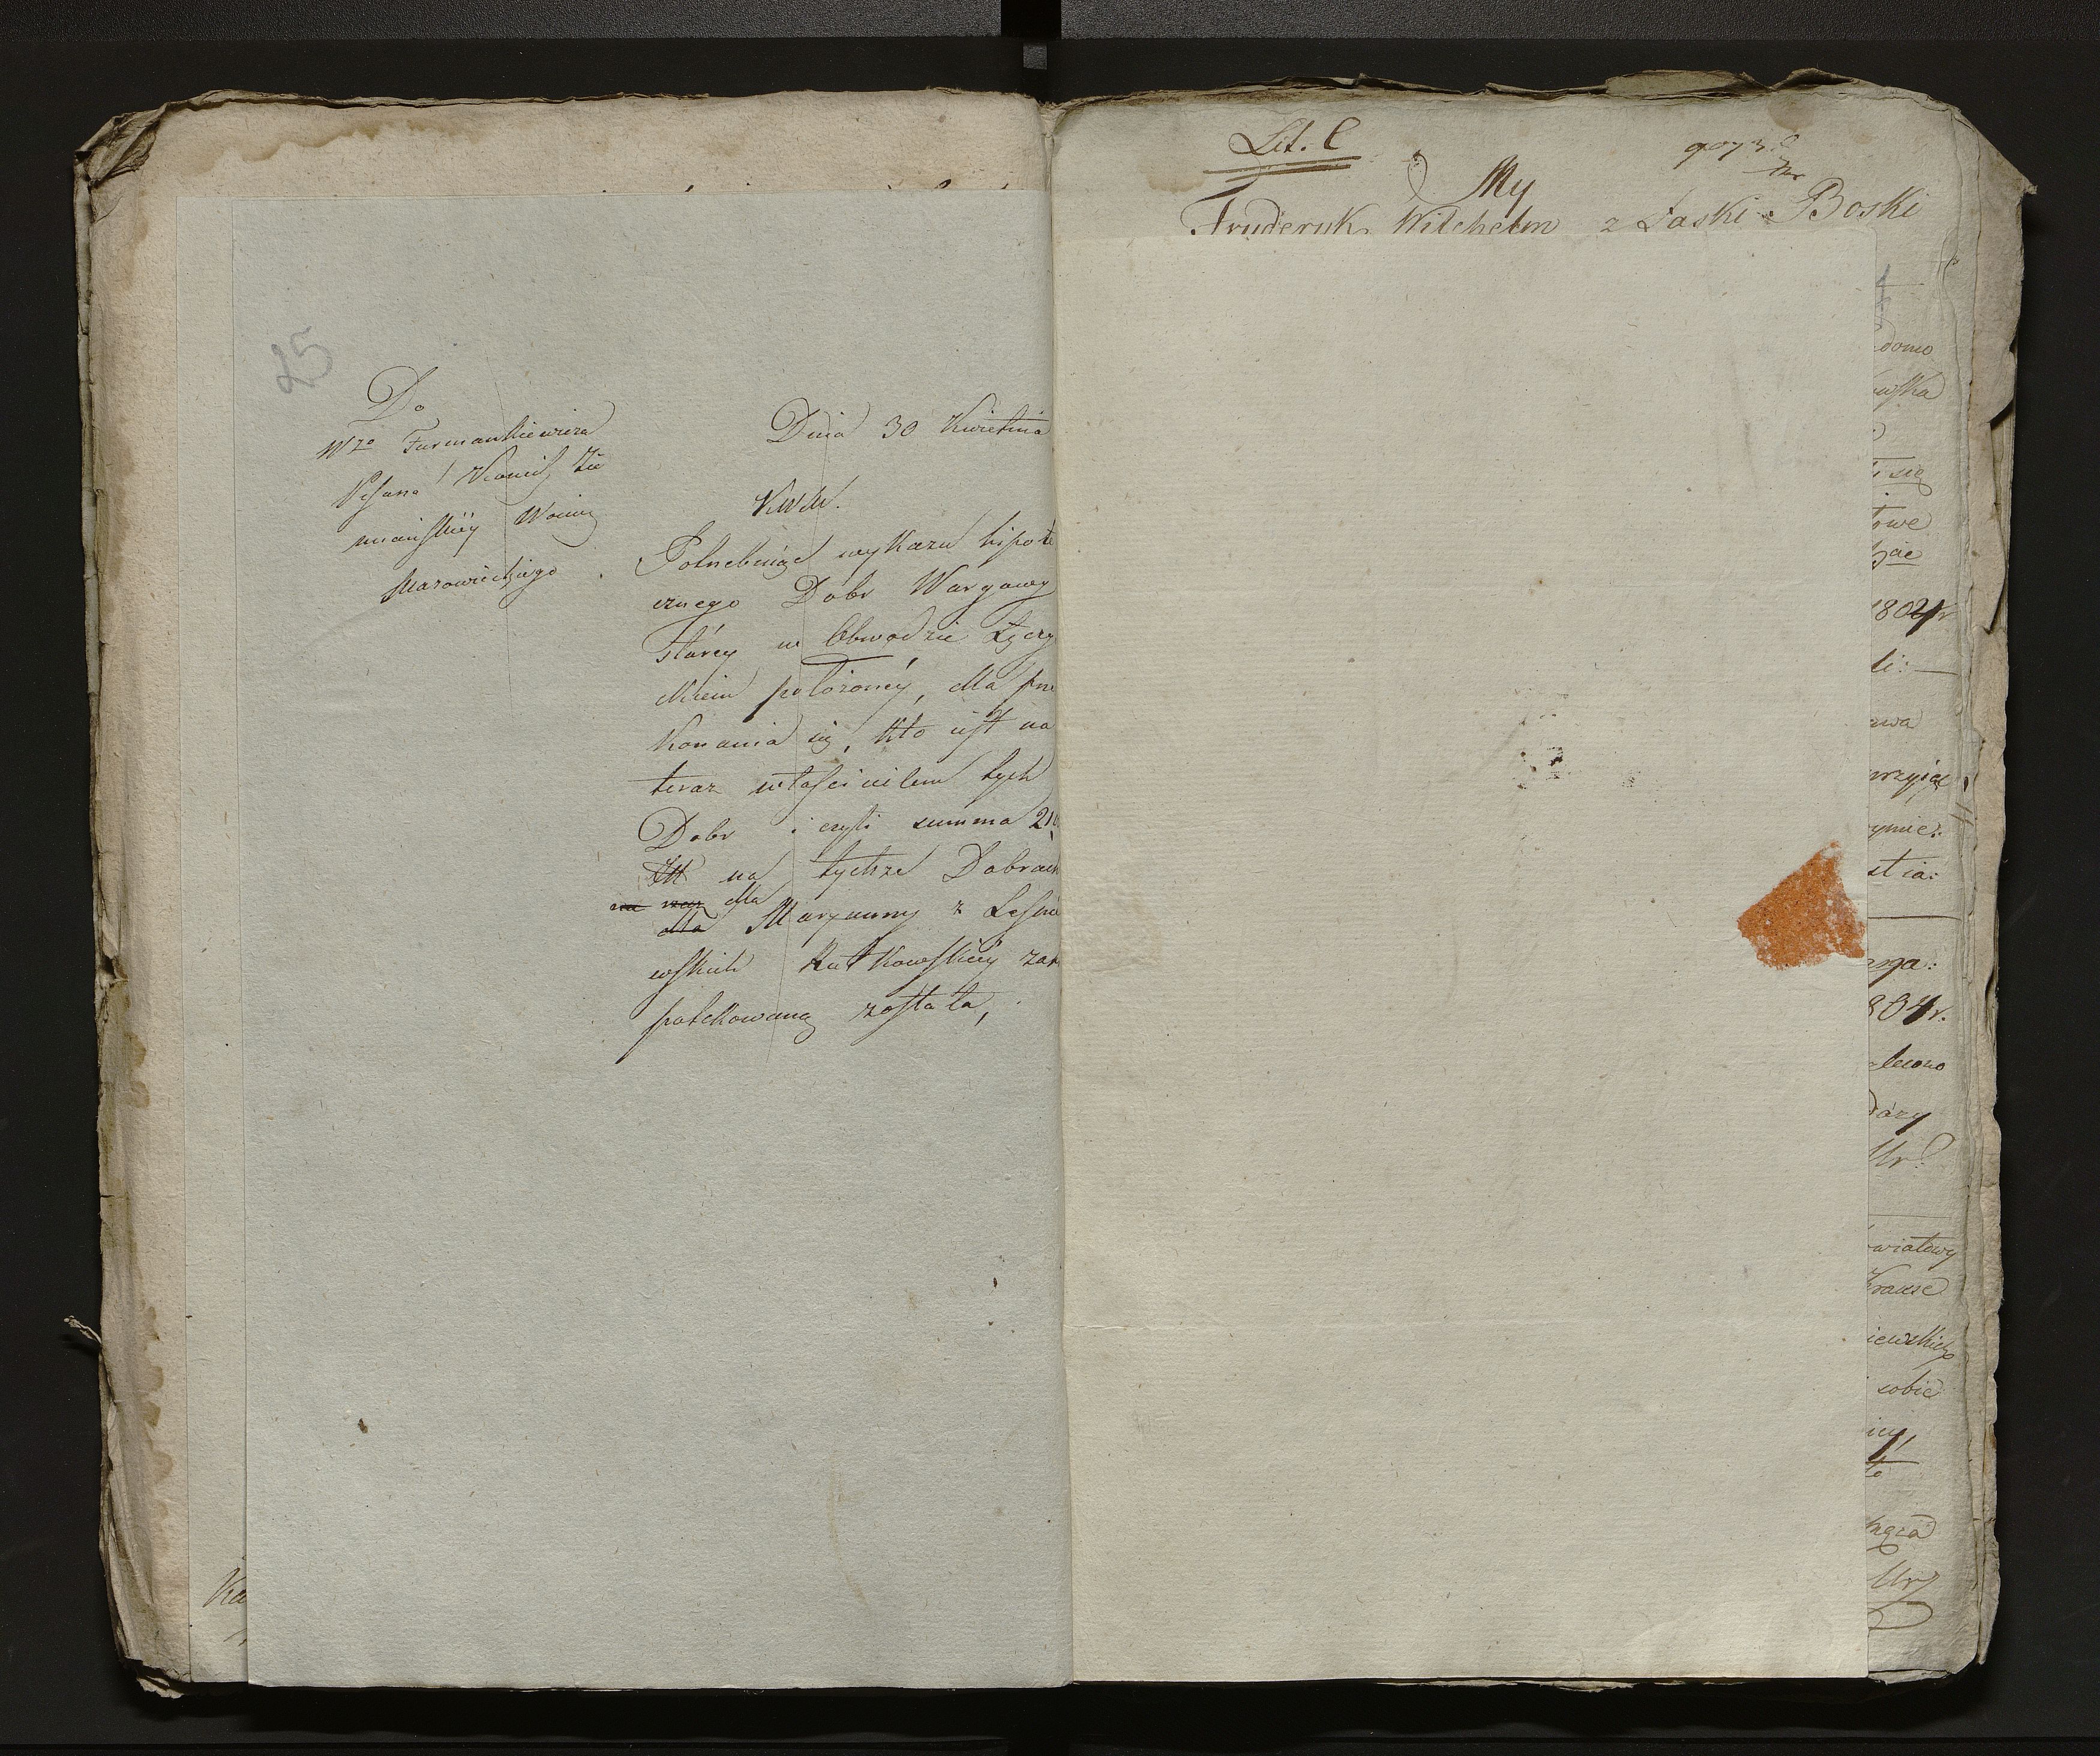 25
Do
Wgo Furmankiewicza
Pisarza Kancel Zie
miańskiey Woiew
Mazowieckiego
Dnia 30 Kwietnia
KWM.
Potrzebuiąc wykazu hipote
cznego Dobr Wargawy
Starey w Obwodzie Łęczy
ckiem położoney, dla prze
konania się, kto iest na
teraz właścicielem tych
Dobr i czyli summa 210
na tychże Dobrach
dla
dla Maryanny z Leśnie
wskich Rutkowskiey zain
tabulowaną została,
Ka
Lit. C
My
Fryderyk Wilchelm z Łaski Boski
domo
wska
się
towe
1804r
li:
awa
przyiąć
ymie:
stia:
804r.
lecono
Mr.
wiatowy
Krause
iewskich
sobie
to
Mr